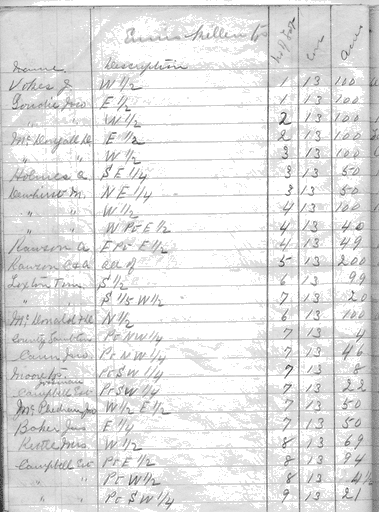 No of Lot Con Acres
Name Description
Vokes J. W 1/2 1 13 100
Goudie Jno E 1/2 1 13 100
" " W 1/2 2 13 100
E 1/2 2 13 100
" " W 1/2 3 13 100
Holmes A S E 1/4 3 13 50
Dewhirst M. N E 1/4 3 13 50
" " W 1/2 4 13 100
" " W Pt E 1/2 4 13 40
Rawson A E Pt E 1/2 4 13 49
Rawson C & A all of 5 13 200
Loxton Tom S 1/2 6 13 99
" S 1/5 W 1/2 7 13 20
McDonald N 1/2 6 13 100
County Pt N W 1/4 7 13 4
Cann Jno Pt N W 1/4 7 13 46
Pt S W 1/4 7 13 8
Campbell Pt S W 1/4 7 13 22
Mc Jno W 1/2 E 1/2 7 13 50
Baker Jas E 1/4 7 13 50
Mrs W 1/2 8 13 69
Campbell Pt E 1/2 8 13 94
" " Pt W 1/2 8 13 4 1/2
" " Pt S W 1/4 9 13 21